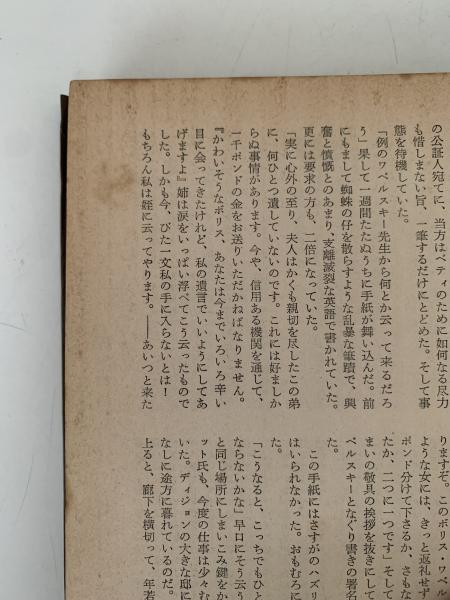 の公証人宛てに、当方はベティのために如何なる尽力
も惜しまない旨、一筆するだけにとどめた。そして事
態を待機していた。
「例のワベルスキー先生から何とか云って来るだろ
う」果して一週間たたぬうちに手紙が舞い込んだ。前
にもまして蜘蛛の仔を散らすような乱暴な筆蹟で、興
奮と憤慨とのあまり、支離滅裂な英語で書かれていた。
更には要求の方も、二倍になっていた。
「実に心外の至り、夫人はかくも親切を尽したこの弟
に、何ひとつ遺していないのです。これには好ましか
らぬ事情があります。今や、信用ある機関を通じて、
一千ポンドの金をお送りいただかねばなりません。
『かわいそうなボリス、あなたは今までいろいろ辛い
目に会ってきたけれど、私の遺言でいいようにしてあ
げますよ』姉は涙をいっぱい浮べてこう云ったもので
した。しかも今、びた一文私の手に入らないとは！
もちろん私は姪に云ってやります。――あいつと来た
りますぞ。このボリス・ワベル
ような女には、きっと返礼せず
ポンド分けて下さるか、さもな
たか、二つに一つです」そして
まいの敬具の挨拶を抜きにして
ベルスキーとなぐり書きの署名
た。
この手紙にはさすがのハズリ
はいられなかった。おもむろに
た。
「こうなると、こっちでもひと
ならないかな」早口にそう云う
と同じ場所にしまいこみ鍵をか
ット氏も、今度の仕事は少々む
いた。ディジョンの大きな邸に
なしに途方に暮れているのだ。
上ると、廊下を横切って、年若